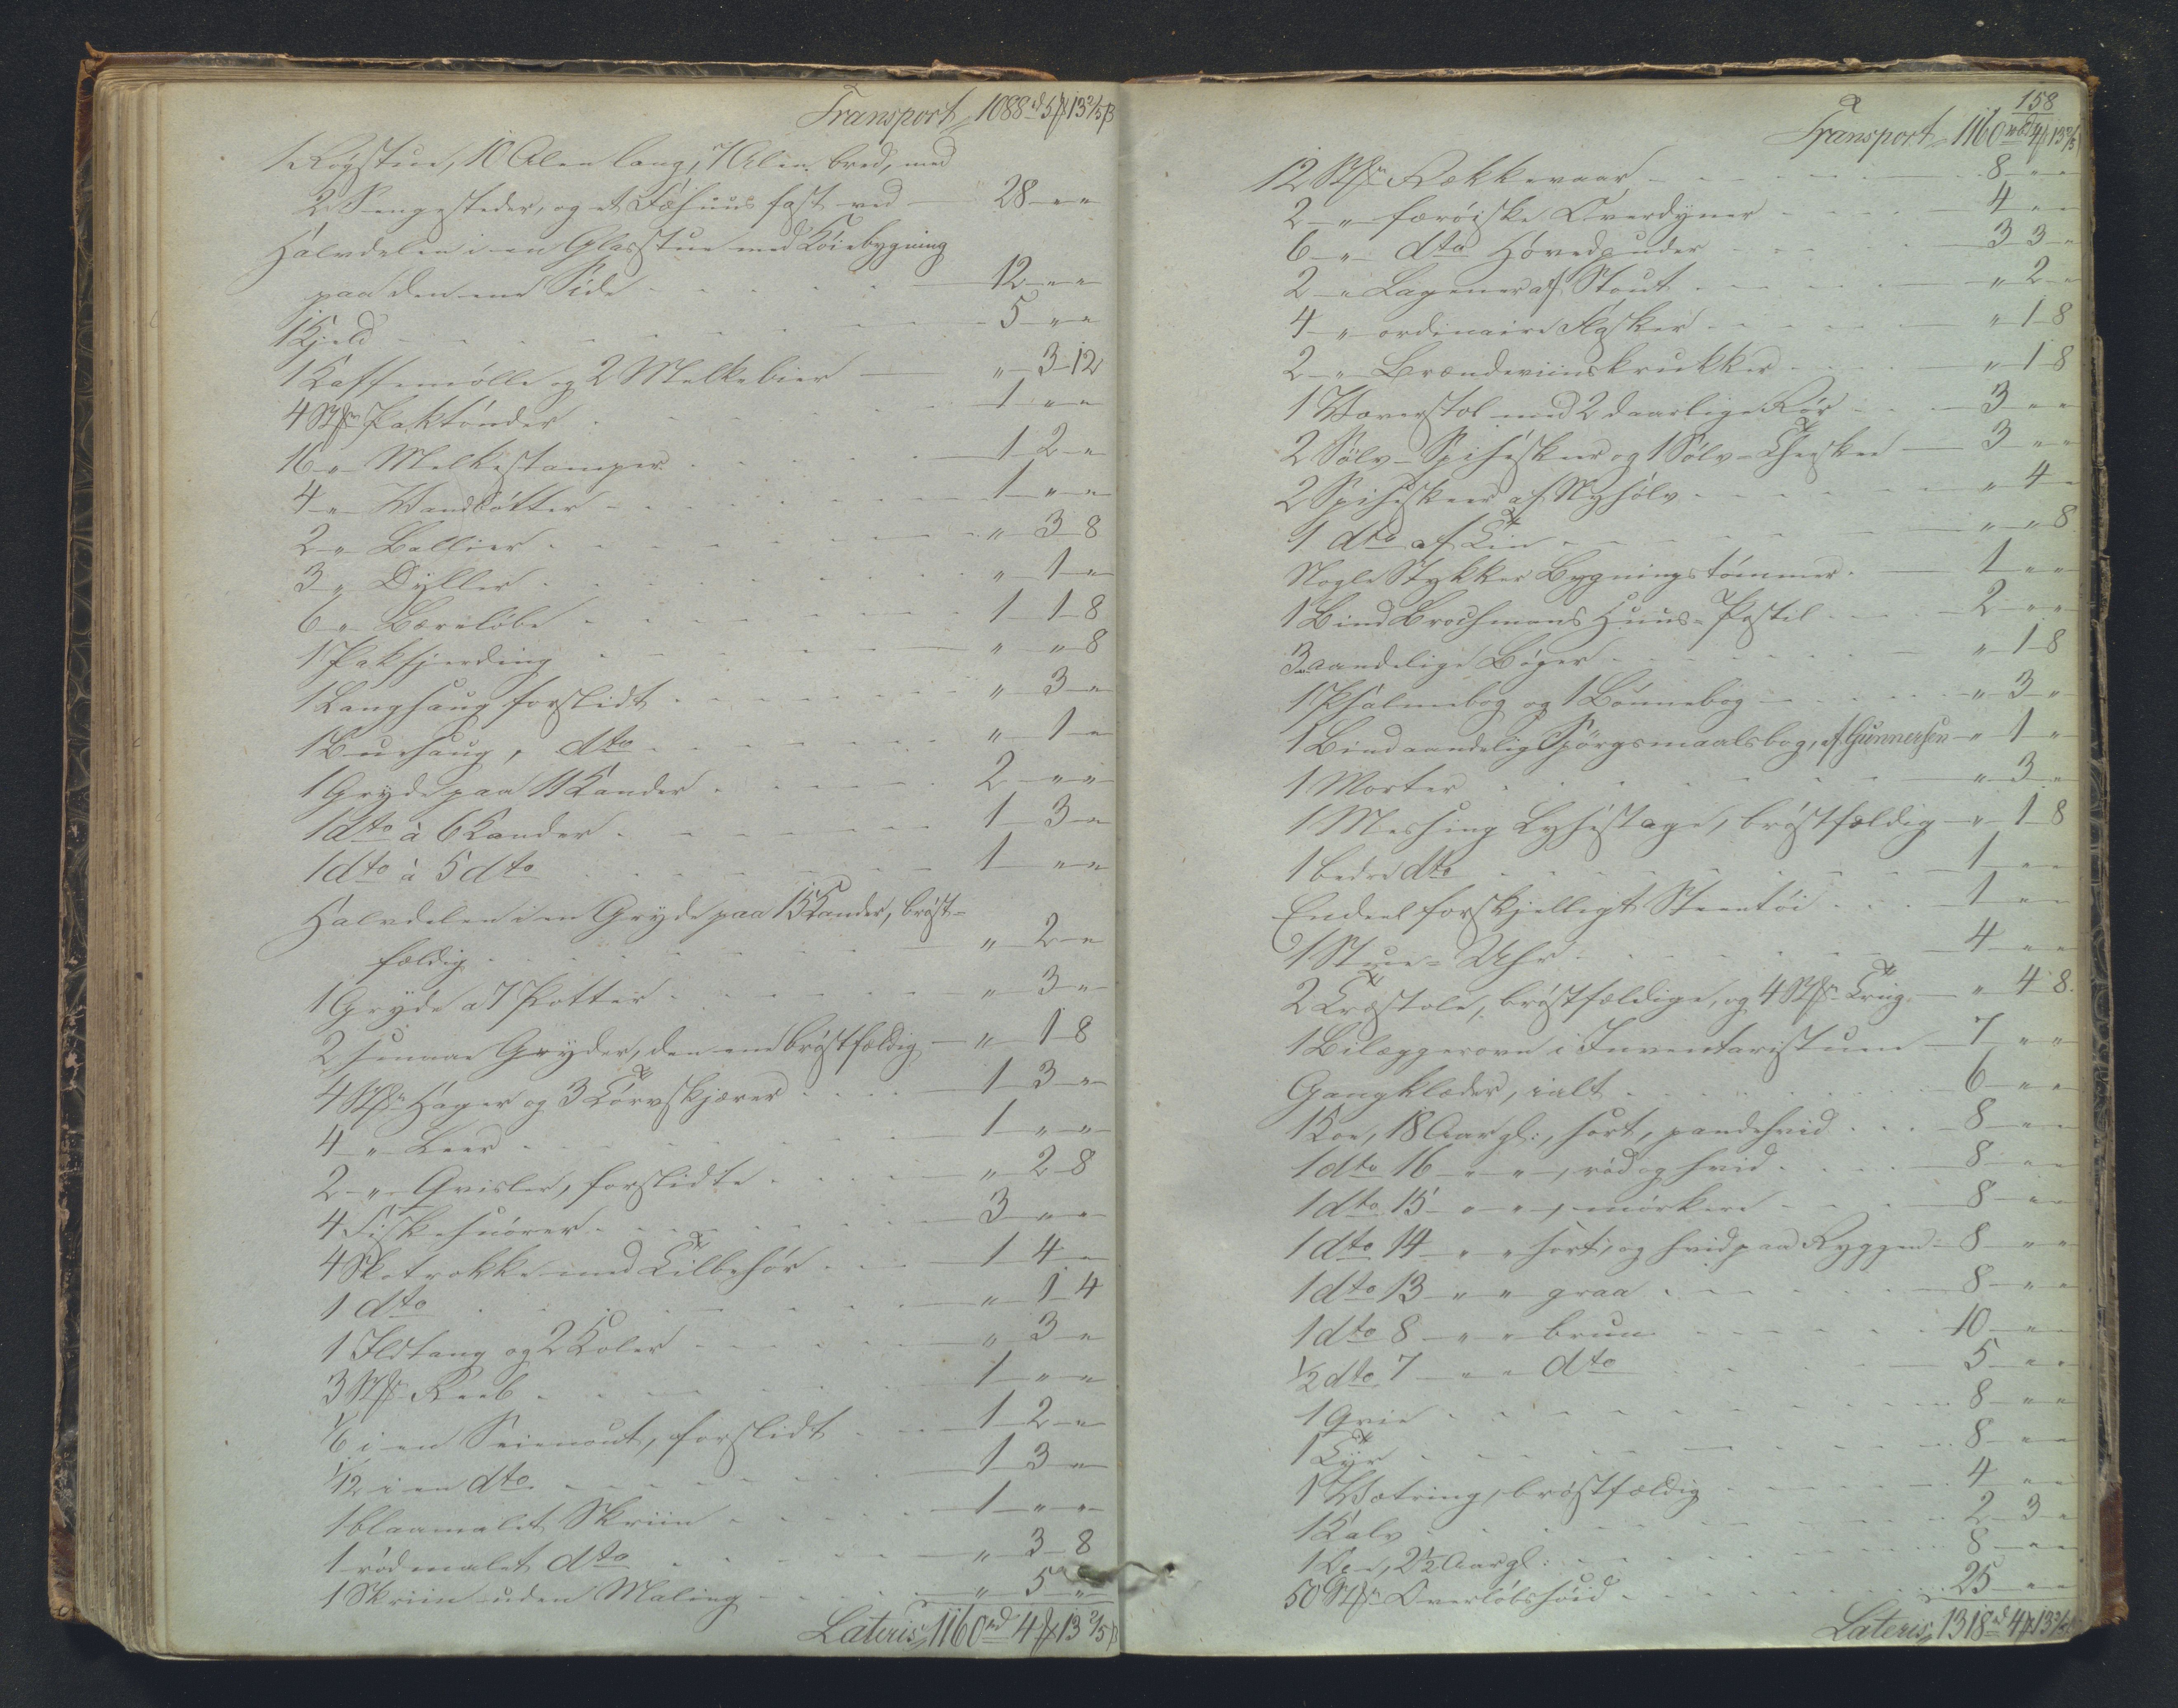 Transport 1088 rd 5 ℔ 13 2/5 β
1 Røgstue, 10 Alen lang, 7 Alen bred, med
2 Sengesteder, og et Fæhuus fast ved — 28 " "
Halvdelen i en Glasstue med Køiebygning
paa den ene Side — 12 " "
1 Kjeld — 5 " "
1 Kaffemølle og 2 Melkebier — " 3 12
4 Stkr Paktønder — 1 " "
16 " Melkestamper — 1 2 "
4 " Vandbøtter — 1 " "
2 " Ballier — " 3 8
3 " Dyller — " 1 "
6 " Bæreløbe — 1 1 8
1 Pakfjerding — " " 8
1 Langsaug forslidt — " 3 "
1 Buesaug, dto — " 1 "
1 Gryde paa 11 Kander — 2 " "
1 dto à 6 Kander — 1 3 "
1 dto à 5 dto — 1 " "
Halvdelen i en Gryde paa 15 Kander, brøst=
fældig — " 2 "
1 Gryde a 7 Potter — " 3 "
2 smaae Gryder, den ene brøstfældig — " 1 8
4 Stkr Hager og 3 Tørvskjærer — 1 3 "
4 " Leer — 1 " "
2 " Grisler, forslidte — " 2 8
4 Fiskesnører — 3 " "
4 Skotrokke med Tilbehør — 1 4 "
1 dto — " 1 4
1 Ildtang og 2 Koler — " 3 "
3 Stkr Reeb — 1 " "
1/6 i en Seienout, forslidt — 1 2 "
1/12 i en dto — 1 3 "
1 blaamalet Skriin — 1 " "
1 rødmalet dto — " 3 8
1 Skriin uden Maling — " 5 "
Lateris 1160 rd 4 ℔ 13 2/5 β
158
Transport 1160 rbd 4 ℔ 13 2/5
12 Stkr Rækkevaar — 8 " "
2 " færøiske Overdyner — 4 " "
6 " dto Hovedpuder — 3 3 "
2 " Lagener af Stout — " 2 "
4 " ordinaire Flasker — " 1 8
2 " Brændeviinskrukker — " 1 8
1 Væverstol med 2 daarlige Rør — 3 " "
2 Sølv-Spiseskeer og 1 Sølv-Theeskee — 3 " "
2 Spiseskeer af Nysølv — " 4 "
1 dto af Tin — " " 8
Nogle Stykker Bygningstømmer — 1 " "
1 Bind Brochmans Huus-Postil — 2 " "
3 aandelige Bøger — " 1 8
1 Psalmebog og 1 Bønnebog — " 3 "
1 Bind aandelig Spørgsmaalsbog, af Gunnersen — " 1 "
1 Morter — " 3 "
1 Messing Lysestage, brøstfældig — " 1 8
1 bedre dto — 1 " "
Endeel forskjelligt Steentøi — 1 " "
1 Stue-Uhr — 4 " "
2 Træstole, brøstfældige, og 4 Stkr Trüg — " 4 8
1 Bilæggerovn i Inventariistuen — 7 " "
Gangklæder, ialt — 6 " "
1 Koe, 18 Aar gl:, sort, pandehvid — 8 " "
1 dto 16 " ", rød og hvid — 8 " "
1 dto 15 " ", mørkere — 8 " "
1 dto 14 " " sort, og hvid paa Ryggen — 8 " "
1 dto 13 " " graa — 8 " "
1 dto 8 " " bruun — 10 " "
1/2 dto 7 " " dto — 5 " "
1 Qvie — 8 " "
1 Tyr — 8 " "
1 Vætring, brøstfældig — 4 " "
1 Kalv — 2 3 "
1 2 1/2 Aar gl: — 8 " "
50 Stkr Overløbshøid — 25 " "
Lateris 1318 rd 4 ℔ 13 2/5